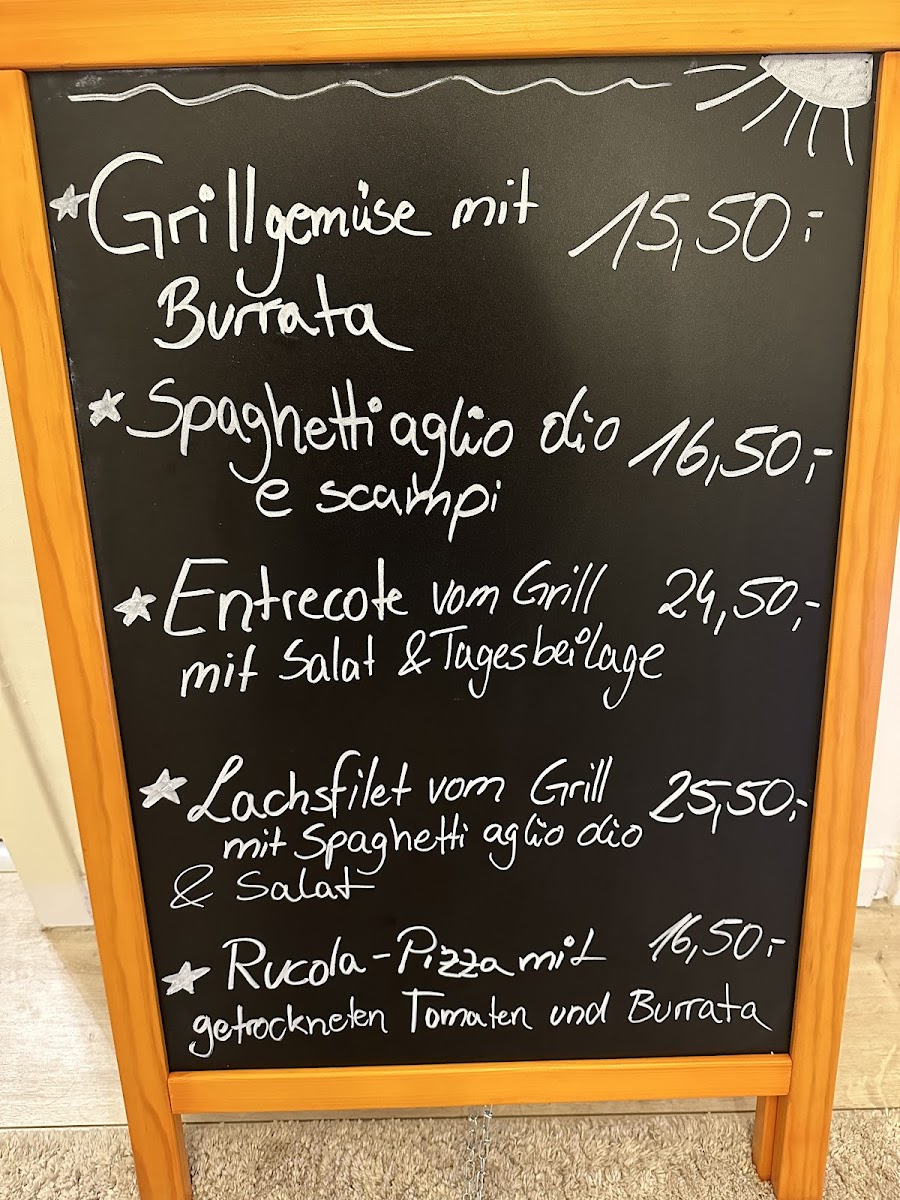 Grillgemüse mit 15,50,-
Burrata
Spaghetti aglio olio 16,50,-
e scampi
Entrecote vom Grill 24,50,-
mit Salat & Tagesbeilage
Lachsfilet vom Grill 25,50,-
mit Spaghetti aglio olio
& Salat
Rucola-Pizza mit 16,50,-
getrockneten Tomaten und Burrata